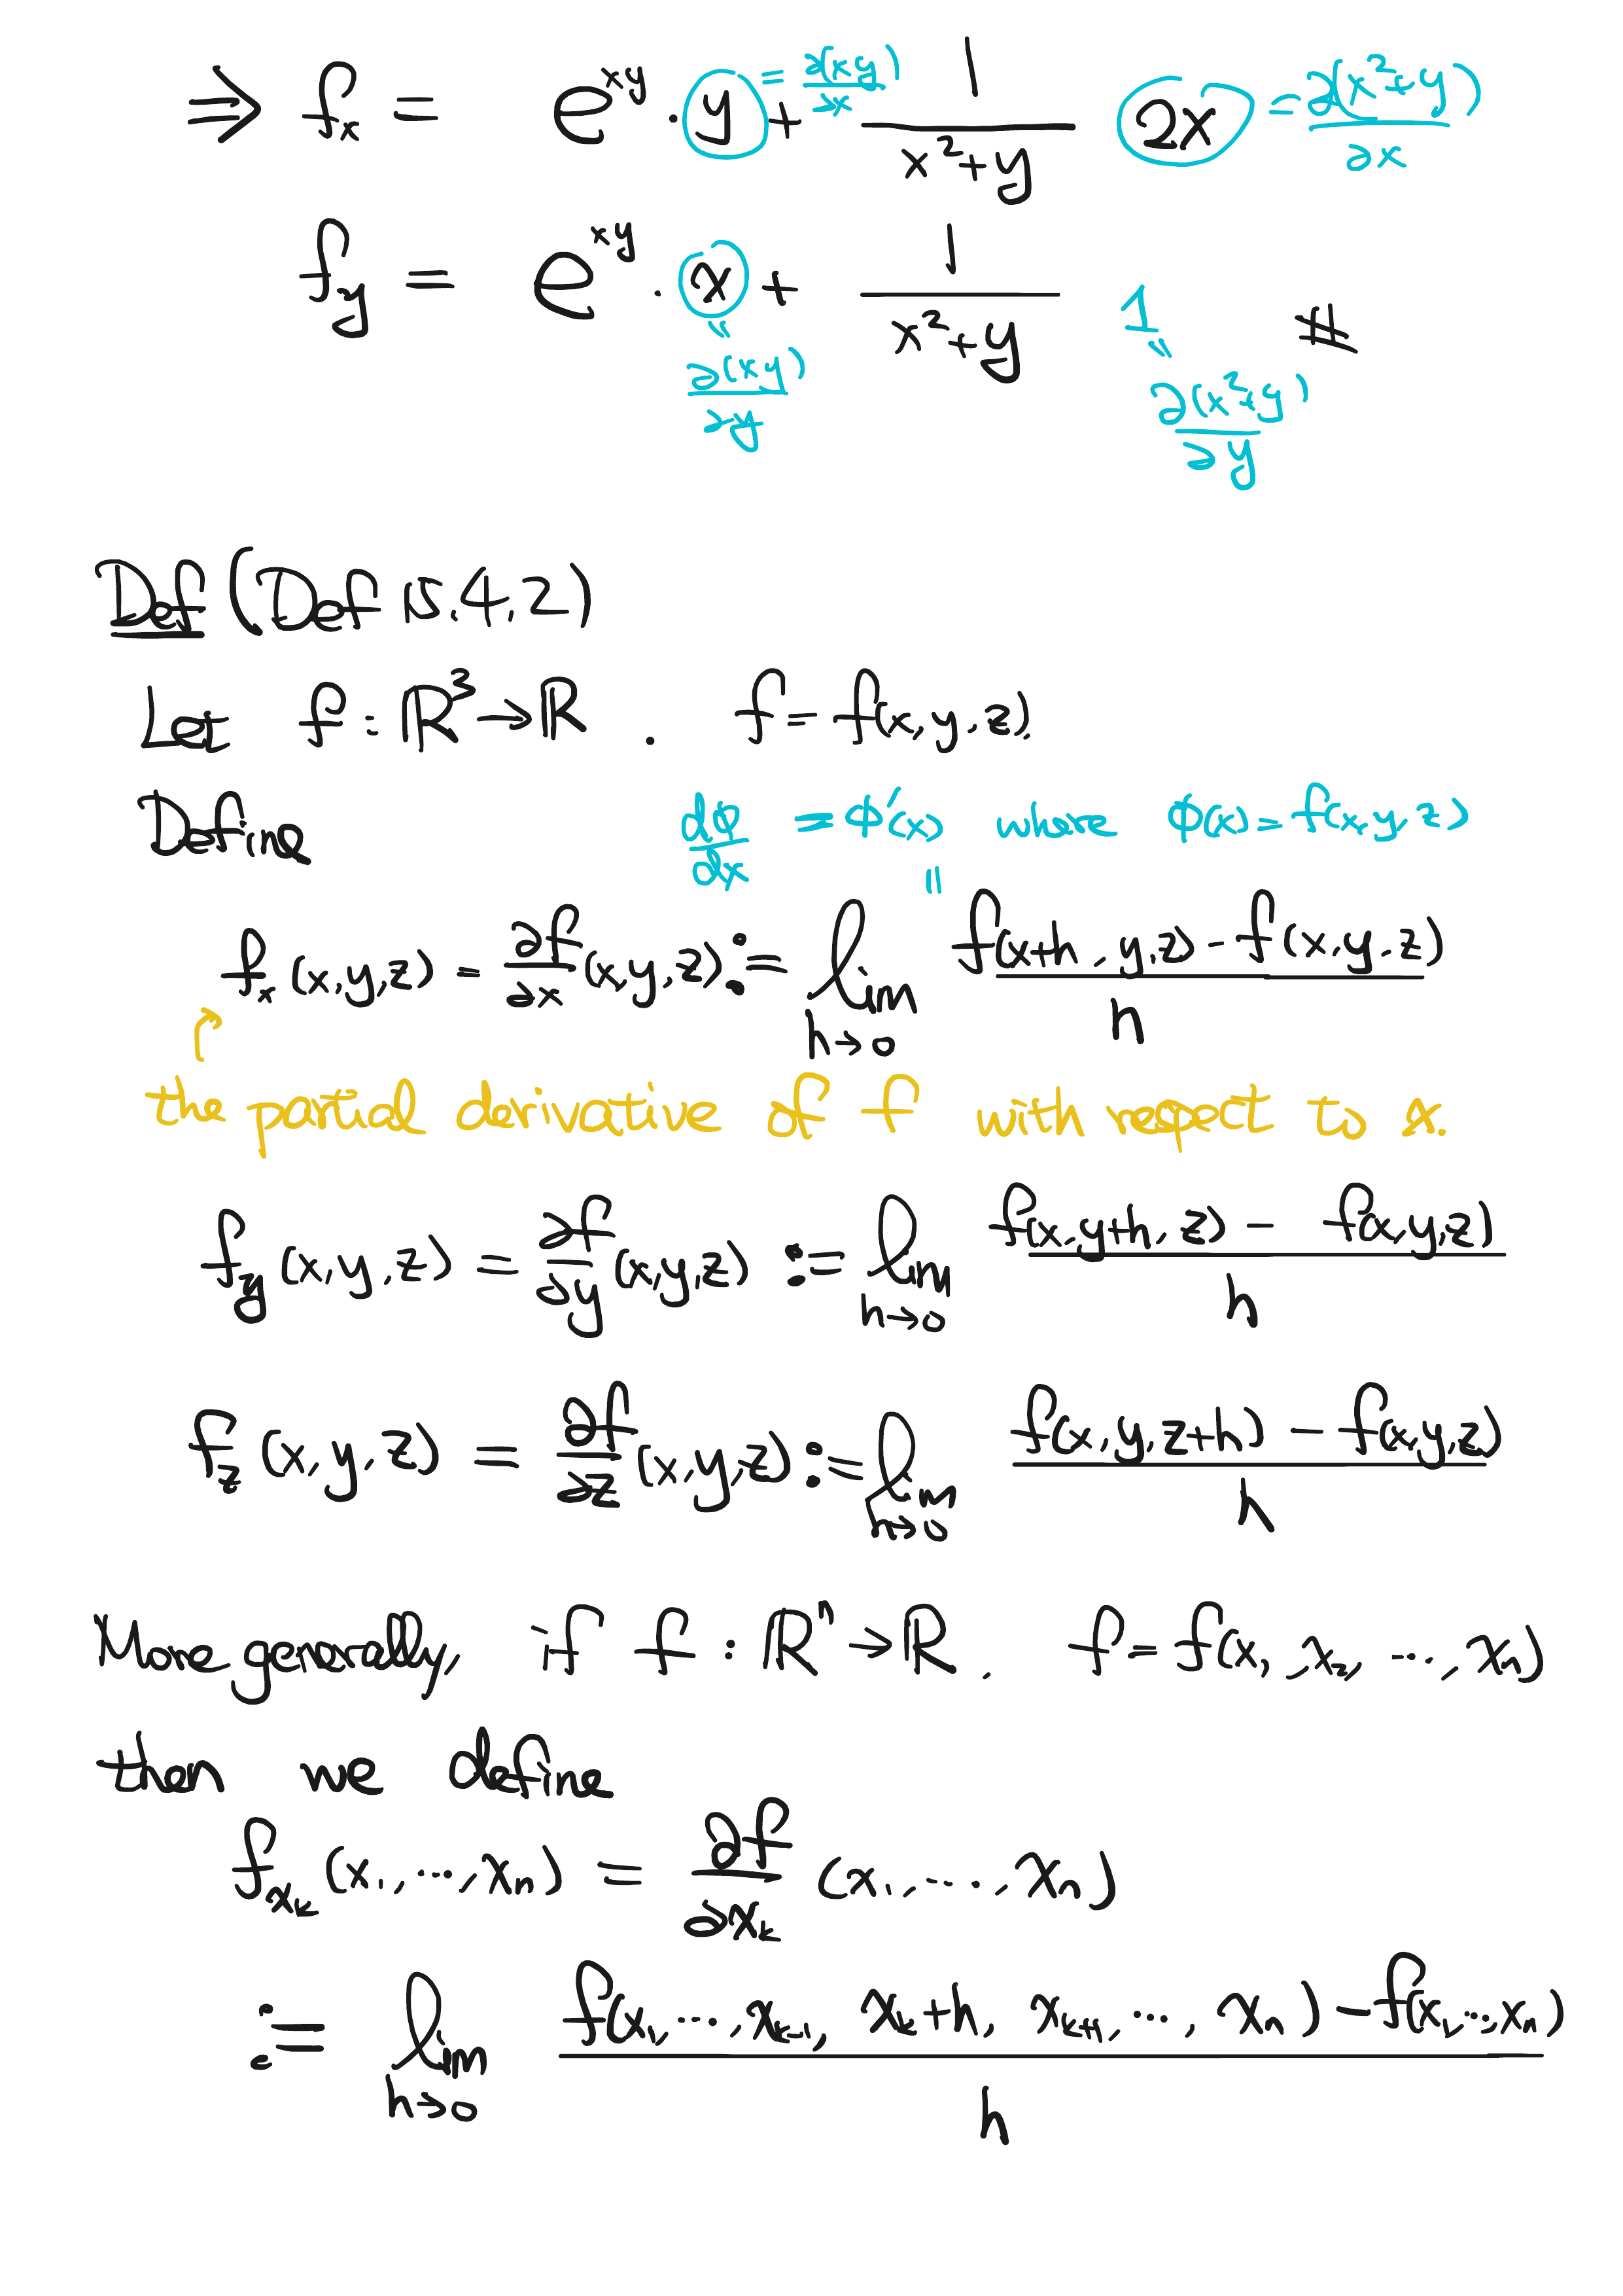 ⇒ f_x = e^{xy} · y = ∂(xy)/∂x + 1/(x²+y) 2x = ∂(x²+y)/∂x
f_y = e^{xy} · x + 1/(x²+y) 1 #
" ∂(xy)/∂y " ∂(x²+y)/∂y
Def (Def 15.4.2)
Let f : ℝ³→ℝ . f = f(x,y,z).
Define dφ/dx = φ'(x) where φ(x) = f(x,y,z)
"
f_x (x,y,z) = ∂f/∂x (x,y,z) := lim_{h→0} (f(x+h,y,z) - f(x,y,z))/h
the partial derivative of f with respect to x.
f_y (x,y,z) = ∂f/∂y (x,y,z) := lim_{h→0} (f(x,y+h,z) - f(x,y,z))/h
f_z (x,y,z) = ∂f/∂z (x,y,z) := lim_{h→0} (f(x,y,z+h) - f(x,y,z))/h
More generally, if f : ℝⁿ→ℝ. f = f(x₁,x₂,…,xₙ)
then we define
f_{x_k} (x₁,…,xₙ) = ∂f/∂x_k (x₁,…,xₙ)
:= lim_{h→0} (f(x₁,…,x_{k-1}, x_k+h, x_{k+1},…,xₙ) - f(x₁,…,xₙ))/h